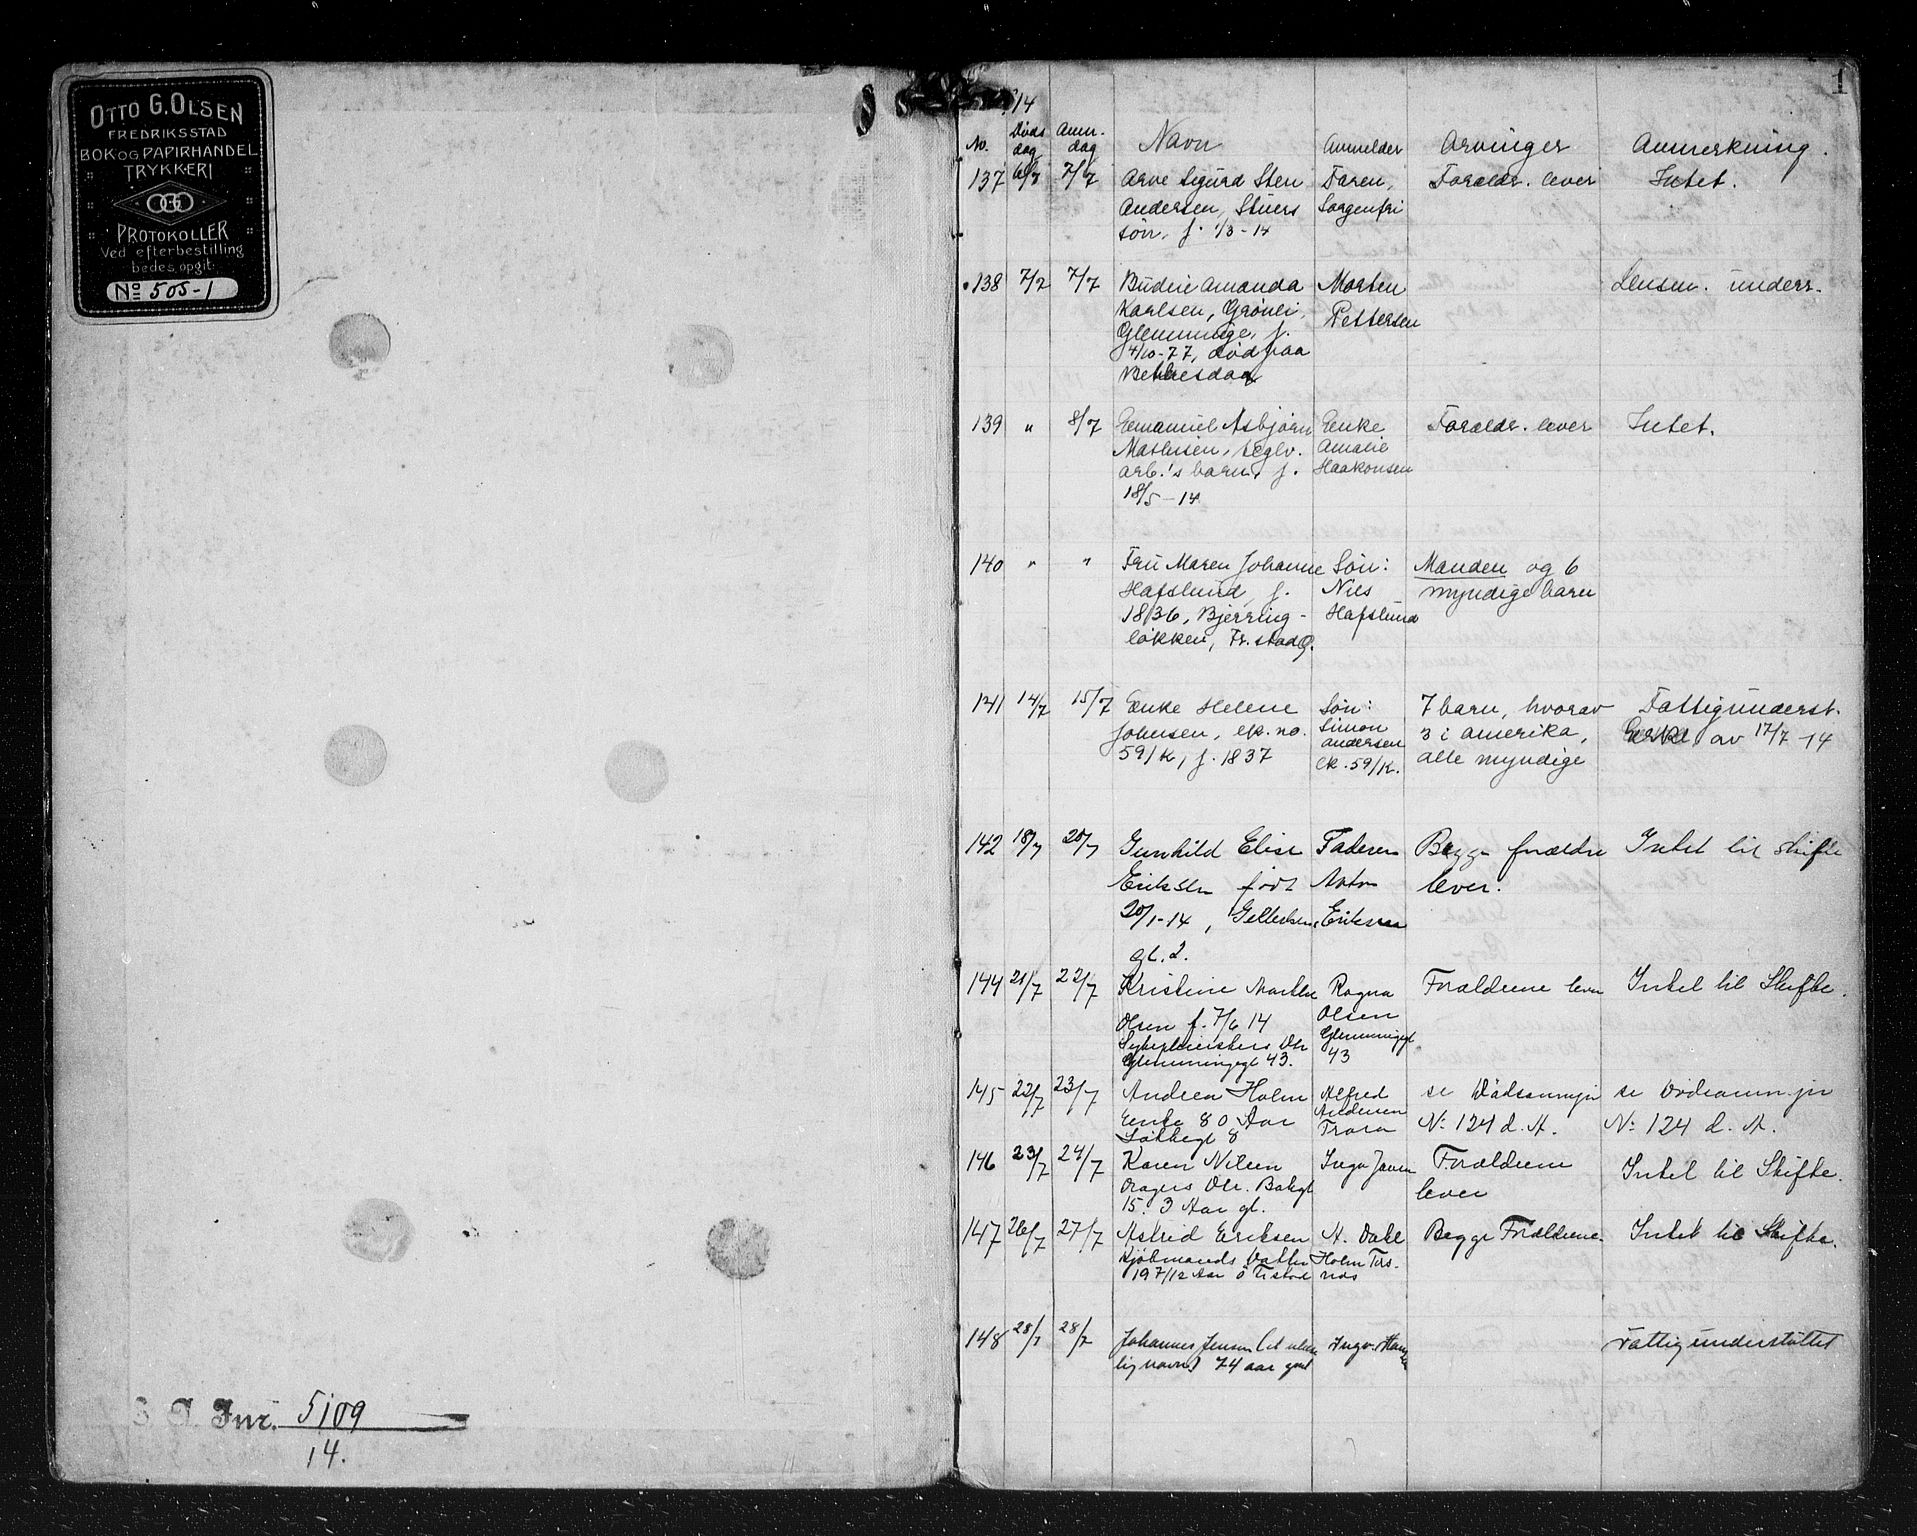 OTTO G. OLSEN
FREDRIKSSTAD
BOK OG PAPIRHANDEL
TRYKKERI
OGO
PROTOKOLLER
Ved efterbestilling
bedes opgit:
No 505-1
Jnr. 5109
14.
1
14
No. Döds dag Anm. dag Navn Anmelder Arvinger Anmerkning.
137 6/7 7/7 Arve Sigurd Sten Faren, Forældr. lever Intet.
Andersen, Stuers Sorgenfri
sön, f. 1/3-14
138 7/2 7/7 Amanda Morten underr.
Karlsen, Grönli, Pettersen
Glemminge, f.
4/10-77, död paa
Bethesda
139 " 8/7 Emanuel Asbjørn Enke Forældr. lever Intet.
Mathisen, teglv. Amalie
arb.'s barn, f. Haakonsen
18/5-14
140 " " Fru Maren Johanne Sön: Manden og 6
Hafslund, f. Nils myndige barn
1836, Bjerring- Hafslund
løkken, Fr.stad
141 14/7 15/7 Enke Helene Sön: 7 barn, hvorav Fattigunderst.
Johnsen, ek. no. Simon Andersen 3 i Amerika, av 17/7-14
59/K, f. 1837 ek. 59/K. alle myndige
142 18/7 20/7 Gunhild Elise Faderen Begge forældre Intet til skifte
Eriksen født Anton lever.
20/1-14, Eriksen
gt. 2.
144 21/7 22/7 Kristine Marthe Ragna Forældrene lever Intet til Skifte.
Olsen f. 7/6 14 Olsen
Dtr Glemmingegt
Glemmingegt 43. 43
145 22/7 23/7 Andrea Holm Alfred se Dødsanm. se Dødsanm.
Enke 80 Aar Andersen No 124 d. A. No 124 d. A.
8 Trara
146 23/7 24/7 Karen Nilsen Inga Forældrene Intet til Skifte.
Dtr. lever
15. 3 Aar gl.
147 26/7 27/7 Astrid Eriksen A. Begge Forældrene Intet til Skifte.
Kjöbmands Datter Holm
19 7/12 Aar
148 28/7 28/7 Johannes Jensen Ingv. Fattigunderstöttet
74 aar gml